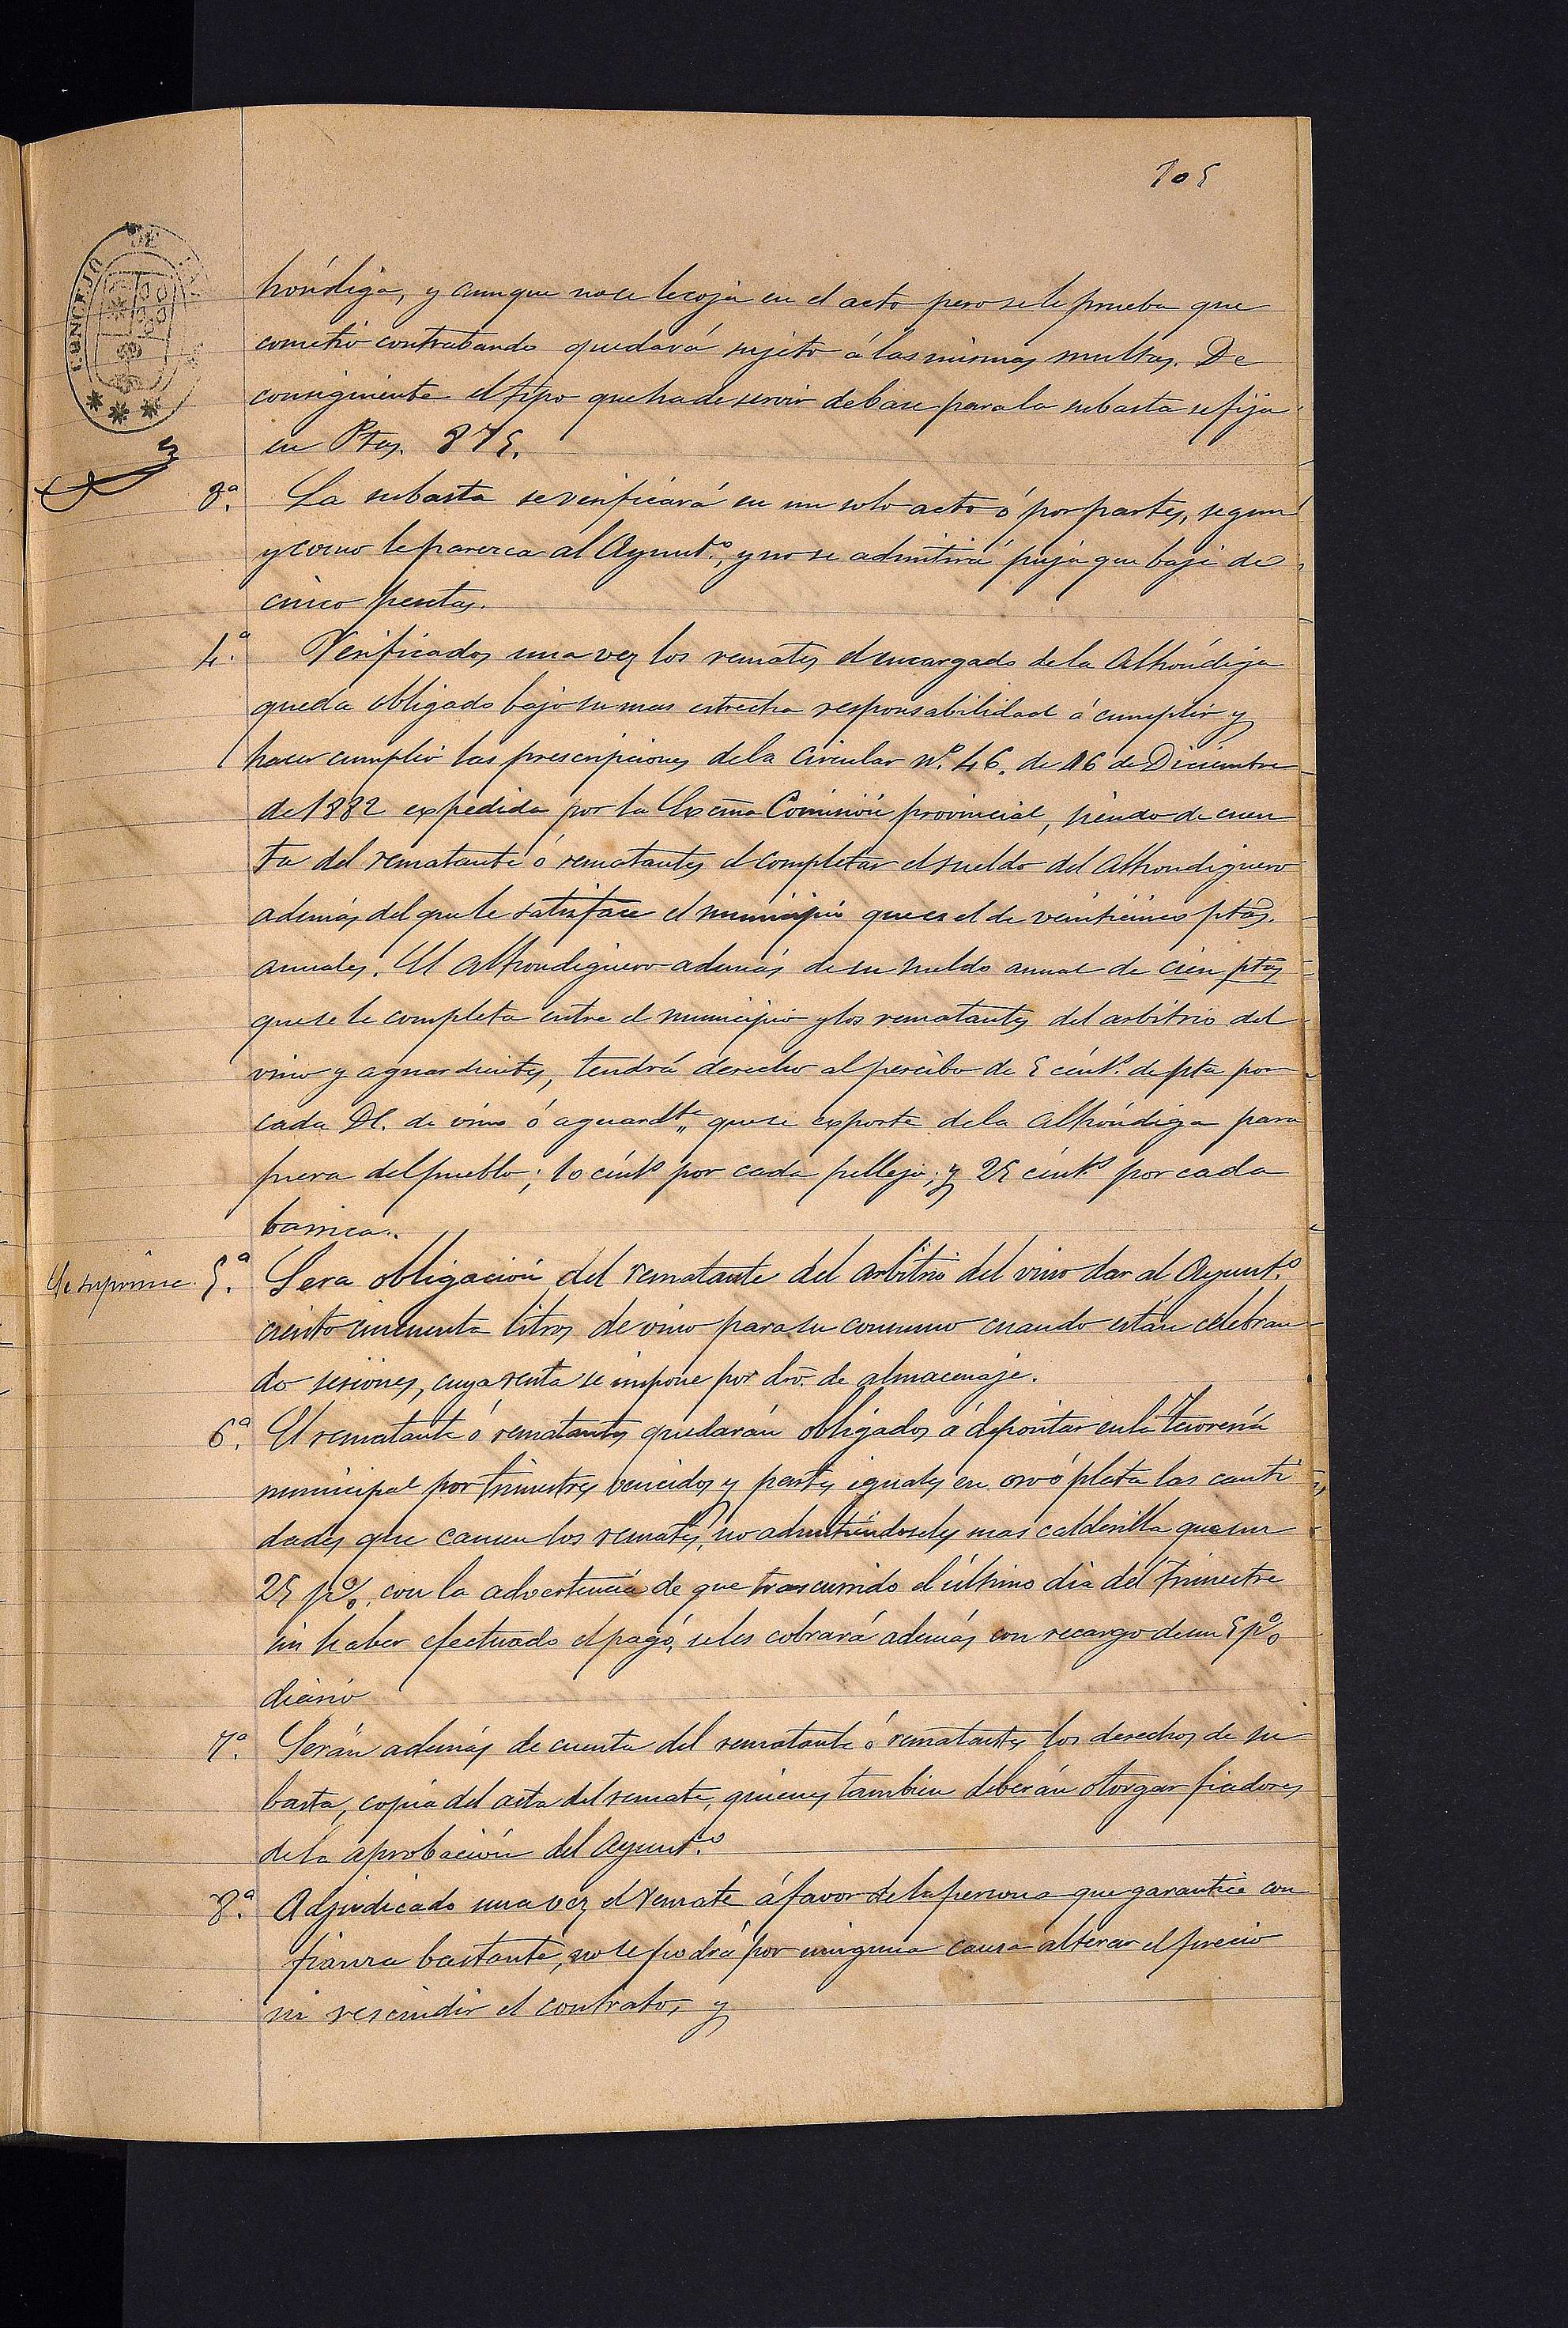 105
CONCEJO DE
hóndiga, y aunque no se le coja en el acto pero se le prueba que
cometió contrabando quedará sujeto á las mismas multas. De
consiguiente el tipo que ha de servir de base para la subasta se fija
en Ptas. 875.
3ª. La subasta se verificará en un solo acto ó por partes, segun
y como le parezca al Ayunt.º, y no se admitirá puja que baje de
cinco pesetas.
4.ª Verificados una vez los remates el encargado de la Alhóndiga
queda obligado bajo su mas estrecha responsabilidad á cumplir y
hacer cumplir las prescripciones de la Circular nº. 46. de 16 de Diciembre
de 1882 expedida por la Excma Comisión provincial, siendo de cuen
ta del rematante ó rematantes el completar el sueldo del Alhondiguero
además del que le satisface el municipio que es el de veinticinco ptas.
anuales. El Alhondiguero además de su sueldo anual de cien ptas
que se le completa entre el municipio y los rematantes del arbitrio del
vino y aguardientes, tendrá derecho al percibo de 5 cént.s de pta por
cada Dl. de vino ó aguardte. que se exporte de la Alhóndiga para
fuera del pueblo; 10 cénts por cada pellejo; y 25 cénts por cada
barrica.
Se suprime. 5.ª Sera obligación del rematante del arbitrio del vino dar al Ayunt.º
ciento cincuenta litros de vino para su consumo cuando están celebran
do sesiones, cuya renta se impone por dro. de almacenaje.
6ª. El rematante ó rematantes quedarán obligados á depositar en la Tesorería
municipal por trimestres vencidos y partes iguales en oro ó plata las canti
dades que causen los remates, no admitiéndoseles mas calderilla que un
25 p%. con la advertencia de que trascurrido el último dia del trimestre
sin haber efectuado el pago, se les cobrará además con recargo de un 5 p%
diario
7ª. Serán además de cuenta del rematante ó rematantes los derechos de su
basta, copia del acta del remate, quienes tambien deberán otorgar fiadores
de la aprobación del Ayunt.º
8.ª Adjudicado una vez el remate á favor de la persona que garantice con
fianza bastante, no se podrá por ninguna causa alterar el precio
ni rescindir el contrato, y